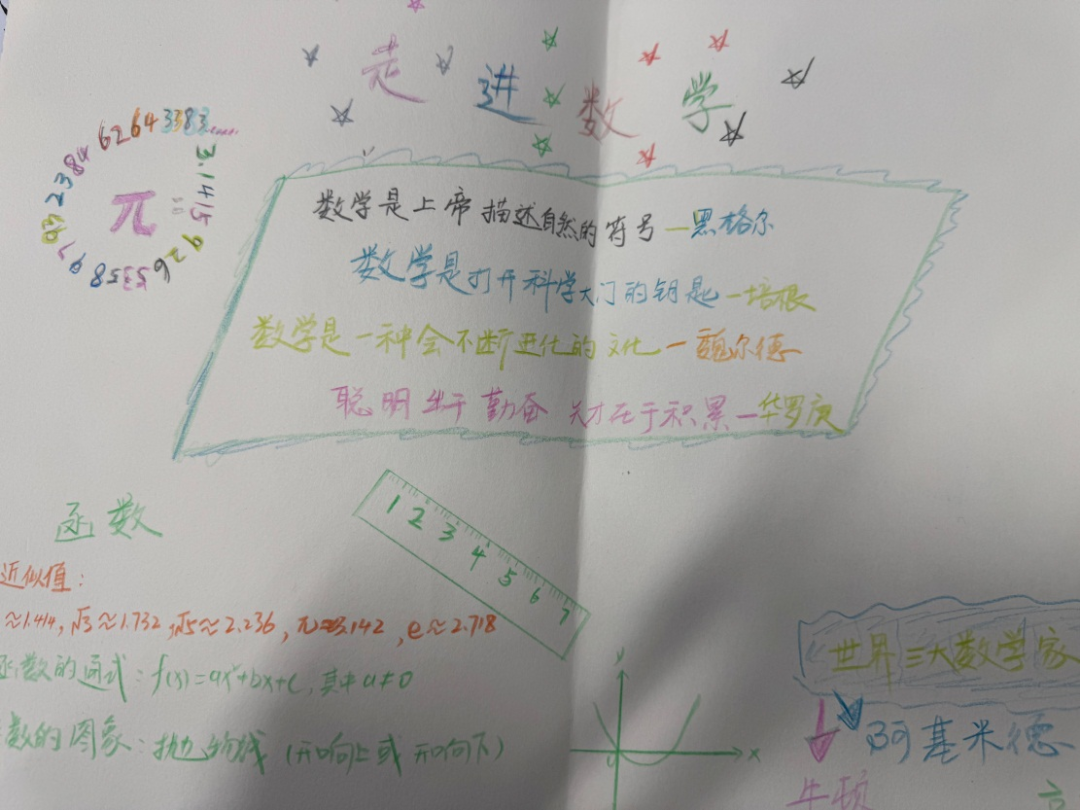 走进数学
3.141592653589793238462643383......
π
数学是上帝描述自然的符号—黑格尔
数学是打开科学大门的钥匙—培根
数学是一种会不断进化的文化—魏尔德
聪明出于勤奋 天才在于积累—华罗庚
函数
1 2 3 4 5 6 7
近似值:
≈1.414, √3≈1.732, √5≈2.236, π≈3.142, e≈2.718
函数的通式: f(x)=ax²+bx+c, 其中a≠0
数的图象: 抛物线 (开口向上或开口向下)
y
x
世界三大数学家
阿基米德
牛顿
高